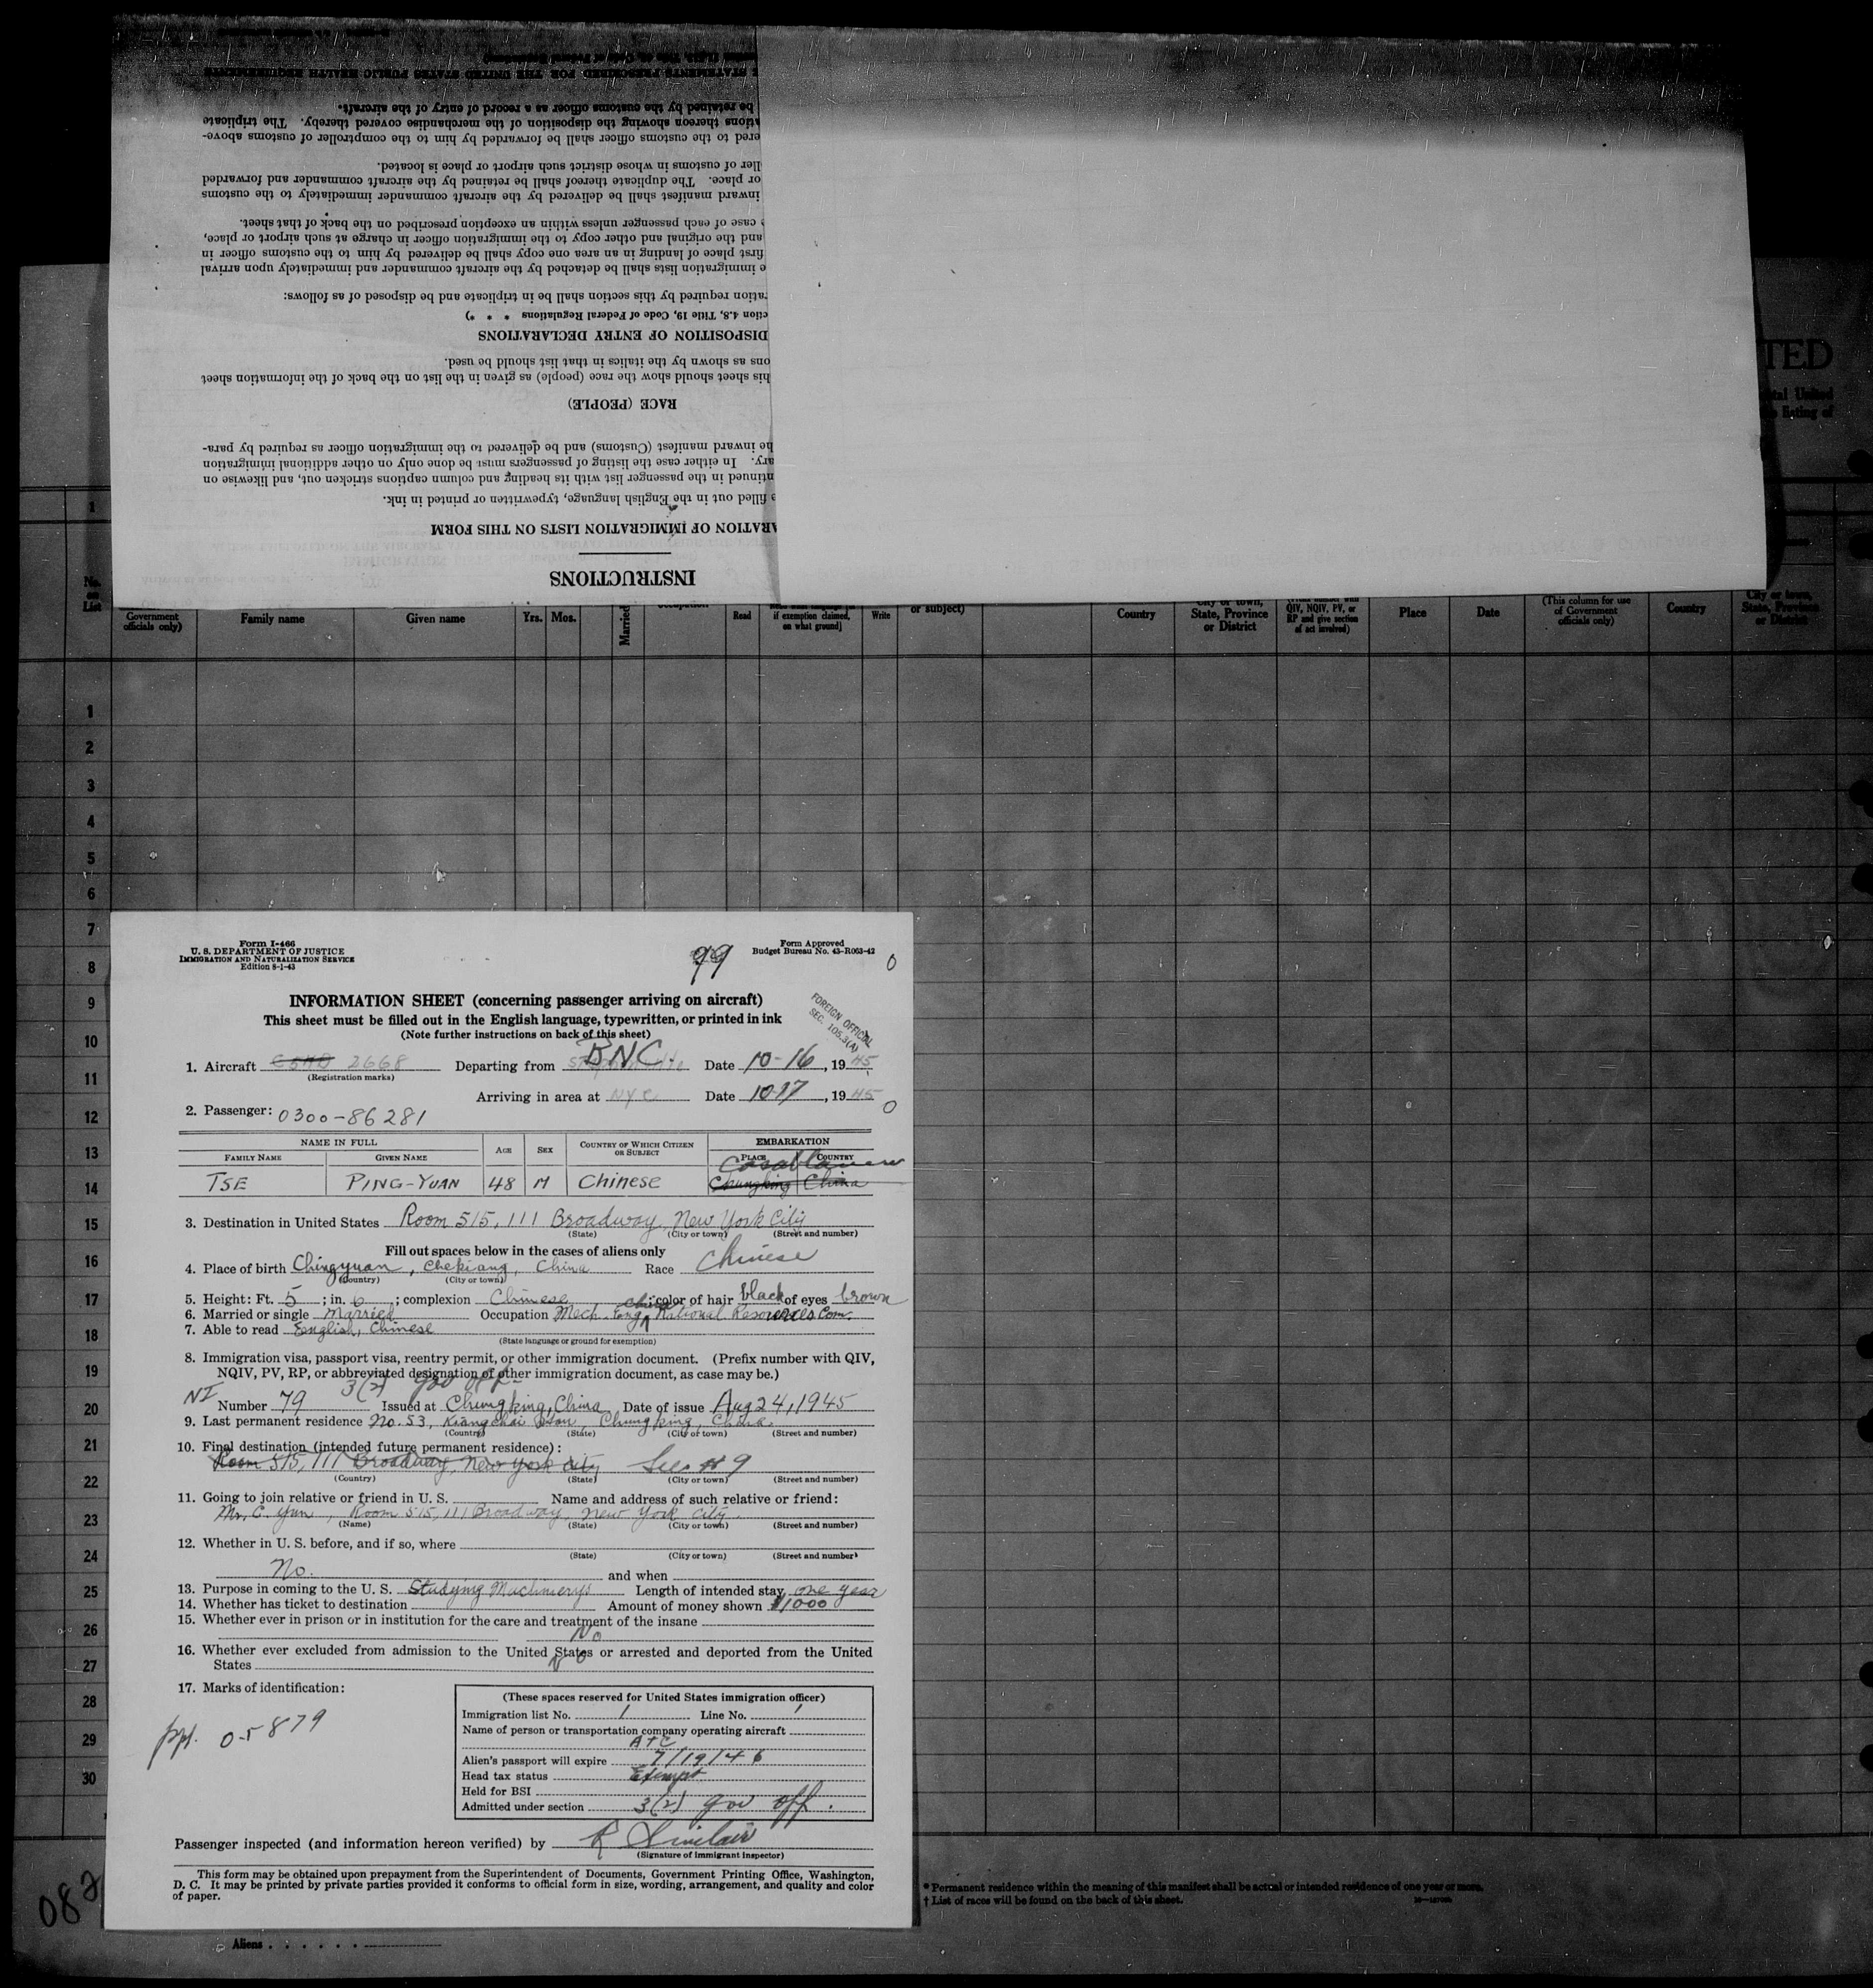 STATEMENTS PRESCRIBED FOR THE UNITED STATES PUBLIC HEALTH REQUIREMENTS
be retained by the customs officer as a record of entry of the aircraft.
ations thereon showing the disposition of the merchandise covered thereby. The triplicate
ered to the customs officer shall be forwarded by him to the comptroller of customs above-
ller of customs in whose district such airport or place is located.
or place. The duplicate thereof shall be retained by the aircraft commander and forwarded
inward manifest shall be delivered by the aircraft commander immediately to the customs
case of each passenger unless within an exception prescribed on the back of that sheet.
and the original and other copy to the immigration officer in charge at such airport or place,
first place of landing in an area one copy shall be delivered by him to the customs officer in
e immigration lists shall be detached by the aircraft commander and immediately upon arrival
ration required by this section shall be in triplicate and be disposed of as follows:
ction 4.8, Title 19, Code of Federal Regulations * * *)
DISPOSITION OF ENTRY DECLARATIONS
ons as shown by the italics in that list should be used.
his sheet should show the race (people) as given in the list on the back of the information sheet
RACE (PEOPLE)
he inward manifest (Customs) and be delivered to the immigration officer as required by para-
ary. In either case the listing of passengers must be done only on other additional immigration
ntinued in the passenger list with its heading and column captions stricken out, and likewise on
filled out in the English language, typewritten or printed in ink.
ARATION OF IMMIGRATION LISTS ON THIS FORM
INSTRUCTIONS
TED
United
listing of
1
No. on List
Government officials only)
Family name
Given name
Yrs.
Mos.
Married
Read
if exemption claimed, on what ground]
Write
or subject)
Country
City or town, State, Province or District
QIV, NQIV, PV, or RP and give section of act involved)
Place
Date
(This column for use of Government officials only)
Country
City or town, State, Province or District
1
2
3
4
5
6
7
8
9
10
11
12
13
14
15
16
17
18
19
20
21
22
23
24
25
26
27
28
29
30
Form I-466
U. S. DEPARTMENT OF JUSTICE
IMMIGRATION AND NATURALIZATION SERVICE
Edition 8-1-43
99
Form Approved
Budget Bureau No. 43-R063-42
0
INFORMATION SHEET (concerning passenger arriving on aircraft)
This sheet must be filled out in the English language, typewritten, or printed in ink
(Note further instructions on back of this sheet)
FOREIGN OFFICIAL
SEC. 105.3(A)
1. Aircraft 2668 Departing from BNC. Date 10-16, 1945
(Registration marks)
Arriving in area at NYC Date 10-17, 1945
0
2. Passenger: 0300-86281
NAME IN FULL AGE SEX COUNTRY OF WHICH CITIZEN OR SUBJECT EMBARKATION
FAMILY NAME GIVEN NAME PLACE COUNTRY
Casablanca
TSE PING-YUAN 48 M Chinese Chungking China
3. Destination in United States Room 515, 111 Broadway, New York City
(State) (City or town) (Street and number)
Fill out spaces below in the cases of aliens only
4. Place of birth Chingyuan, Chekiang, China Race Chinese
(Country) (City or town)
5. Height: Ft. 5; in. 6; complexion Chinese; color of hair black of eyes brown
6. Married or single Married Occupation Mech. Eng. China National Resources Com.
7. Able to read English, Chinese
(State language or ground for exemption)
8. Immigration visa, passport visa, reentry permit, or other immigration document. (Prefix number with QIV,
NQIV, PV, RP, or abbreviated designation of other immigration document, as case may be.)
3(2) gov off-
NI Number 79 Issued at Chungking, China Date of issue Aug 24, 1945
9. Last permanent residence No. 53, Kiangchai, Chungking, China.
(Country) (State) (City or town) (Street and number)
10. Final destination (intended future permanent residence):
Room 515, 111 Broadway, New York City See #9
(Country) (State) (City or town) (Street and number)
11. Going to join relative or friend in U. S. Name and address of such relative or friend:
Mr. C. Yun, Room 515, 111 Broadway, New York City.
(Name) (State) (City or town) (Street and number)
12. Whether in U. S. before, and if so, where
(State) (City or town) (Street and number)
No. and when
13. Purpose in coming to the U. S. Studying Machinerys Length of intended stay one year
14. Whether has ticket to destination Amount of money shown $1000
15. Whether ever in prison or in institution for the care and treatment of the insane
No
16. Whether ever excluded from admission to the United States or arrested and deported from the United
States No
17. Marks of identification:
ppt. 0-5879
(These spaces reserved for United States immigration officer)
Immigration list No. 1 Line No. 1
Name of person or transportation company operating aircraft
ATC
Alien's passport will expire 7/19/46
Head tax status Exempt
Held for BSI
Admitted under section 3(2) gov off.
Passenger inspected (and information hereon verified) by R Sinclair
(Signature of immigrant inspector)
This form may be obtained upon prepayment from the Superintendent of Documents, Government Printing Office, Washington,
D. C. It may be printed by private parties provided it conforms to official form in size, wording, arrangement, and quality and color
of paper.
* Permanent residence within the meaning of this manifest shall be actual or intended residence of one year or more.
† List of races will be found on the back of this sheet.
Aliens